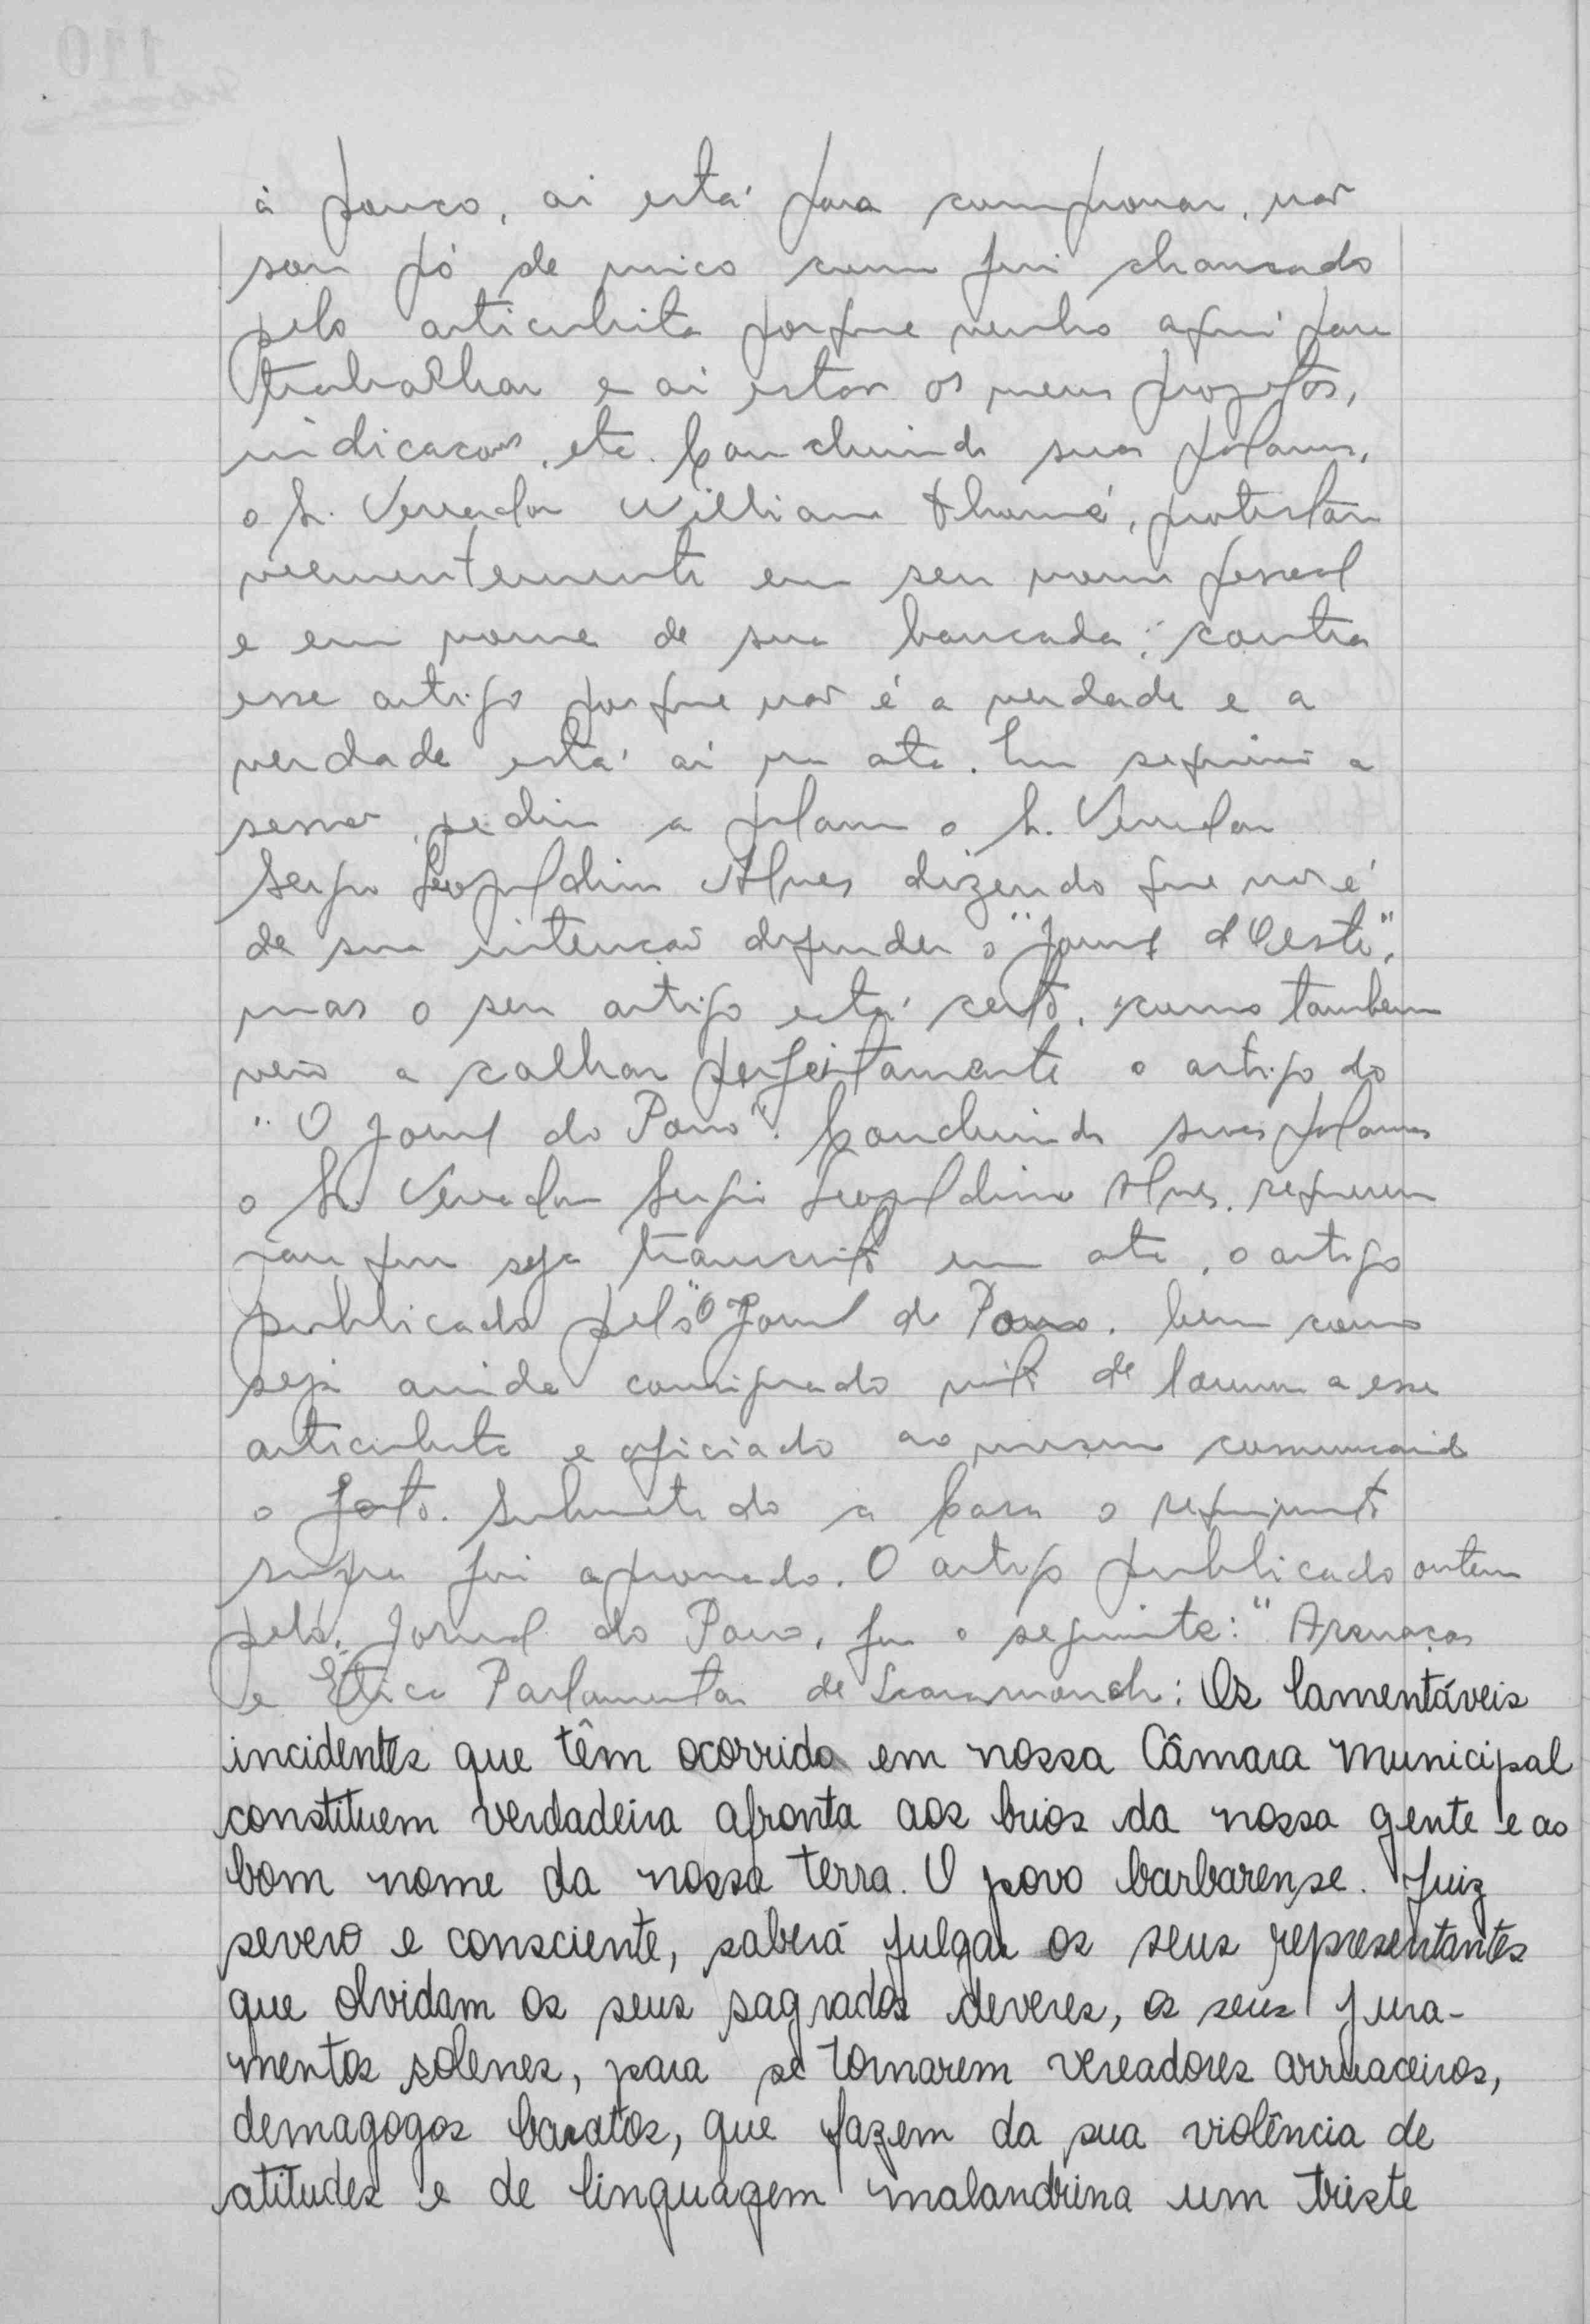 à pouco, ai está para comprovar, não
sou pó de mico como fui chamado
pelo articulista porque venho aqui para
trabalhar e ai estão os meus projetos,
indicações, etc. Concluindo suas palavras,
o Sr. Vereador William Thomé, protestou
veementemente em seu nome pessoal
e em nome de sua bancada, contra
esse artigo porque não é a verdade e a
verdade está ai na ata. Em seguida a
pediu a palavra o Sr. Vereador
Sergio Leopoldino Alves dizendo que não é
de sua intenção defender o "Jornal d'Oeste",
mas o seu artigo está certo, como tambem
veio a calhar perfeitamente o artigo do
"O Jornal do Povo". Concluindo suas palavras
o Sr. Vereador Sergio Leopoldino Alves, requereu
para que seja transcrito em ata, o artigo
publicado pelo "O Jornal do Povo, bem como
seja ainda consignado voto de louvor a esse
articulista e oficiado ao mesmo comunicando
o fato. Submetido a Casa o requerimento
supra foi aprovado. O artigo publicado ontem
pelo, Jornal do Povo, foi o seguinte: "Arruaças
e Ética Parlamentar de : Os lamentáveis
incidentes que têm ocorrido em nossa Câmara Municipal
constituem verdadeira afronta aos brios da nossa gente e ao
bom nome da nossa terra. O povo barbarense. Juiz
severo e consciente, saberá julgar os seus representantes
que olvidam os seus sagrados deveres, os seus jura-
mentos solenes, para se tornarem vereadores arruaceiros,
demagogos baratos, que fazem da sua violência de
atitudes e de linguagem malandrina um triste